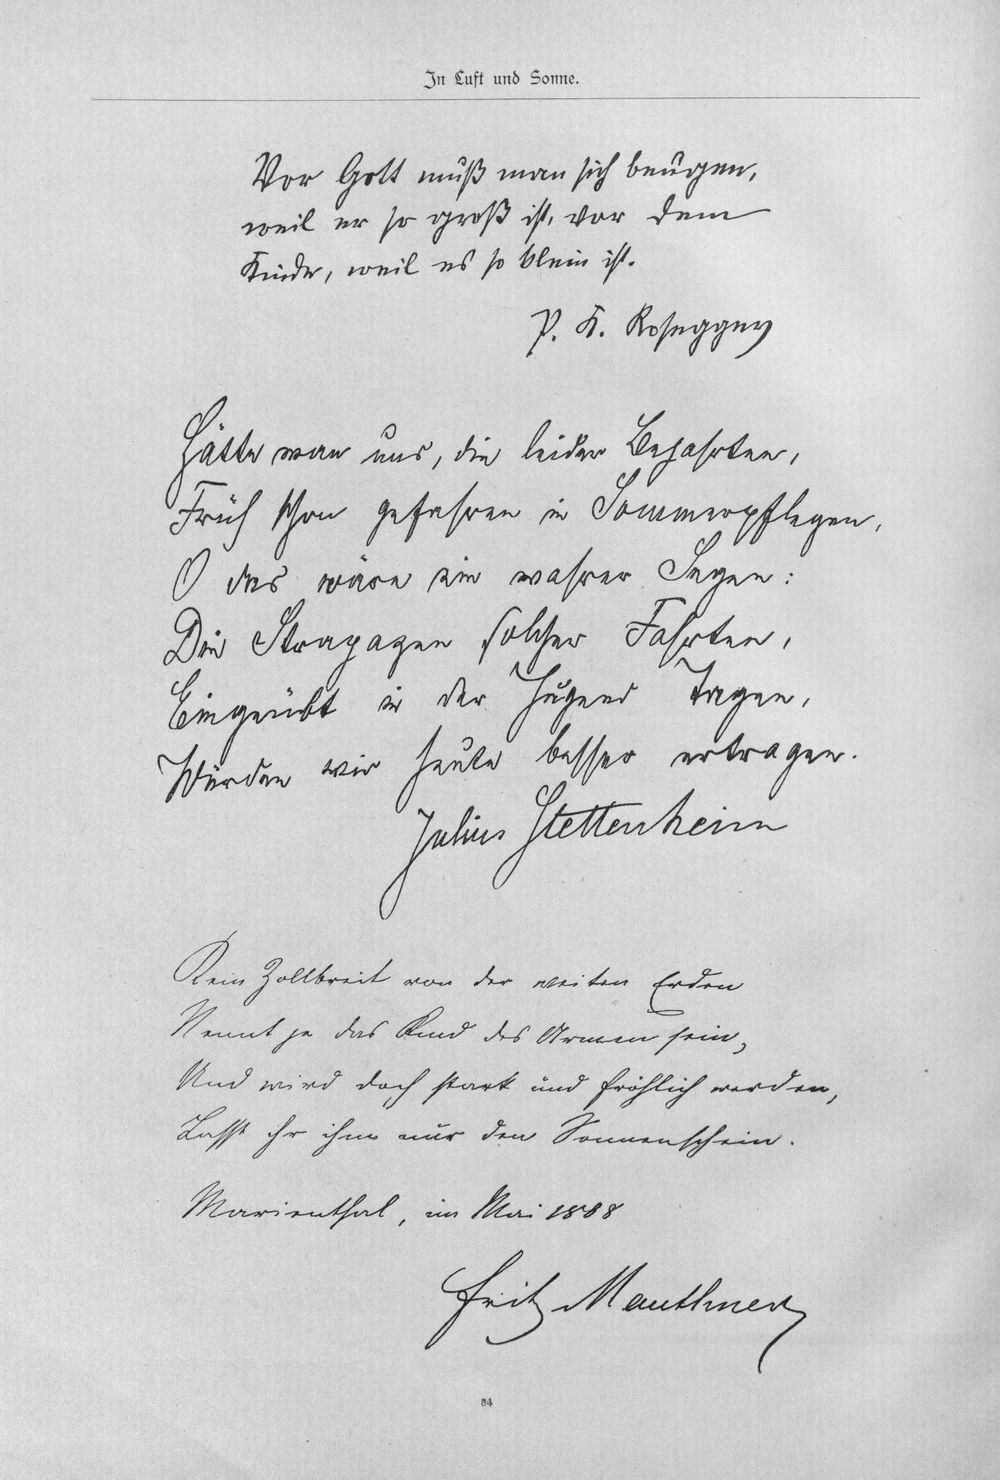 In Luft und Sonne.
Vor Gott muß man sich beugen,
weil er so groß ist, vor dem
Kinde, weil es so klein ist.
P. K. Rosegger
Hätte man uns, die leider Bejahrten,
Früh schon gefahren in Sommerpflegen,
O das wäre ein wahrer Segen:
Die Strapazen solcher Fahrten,
Eingeübt in der Jugend Tagen,
Würden wir heute besser ertragen.
Julius Stettenheim
Kein Zollbreit von der weiten Erden
Nennt je das Kind des Armen sein,
Und wird doch stark und fröhlich werden,
Lasst ihr ihm nur den Sonnenschein.
Marienthal, im Mai 1888
Fritz Mauthner
84